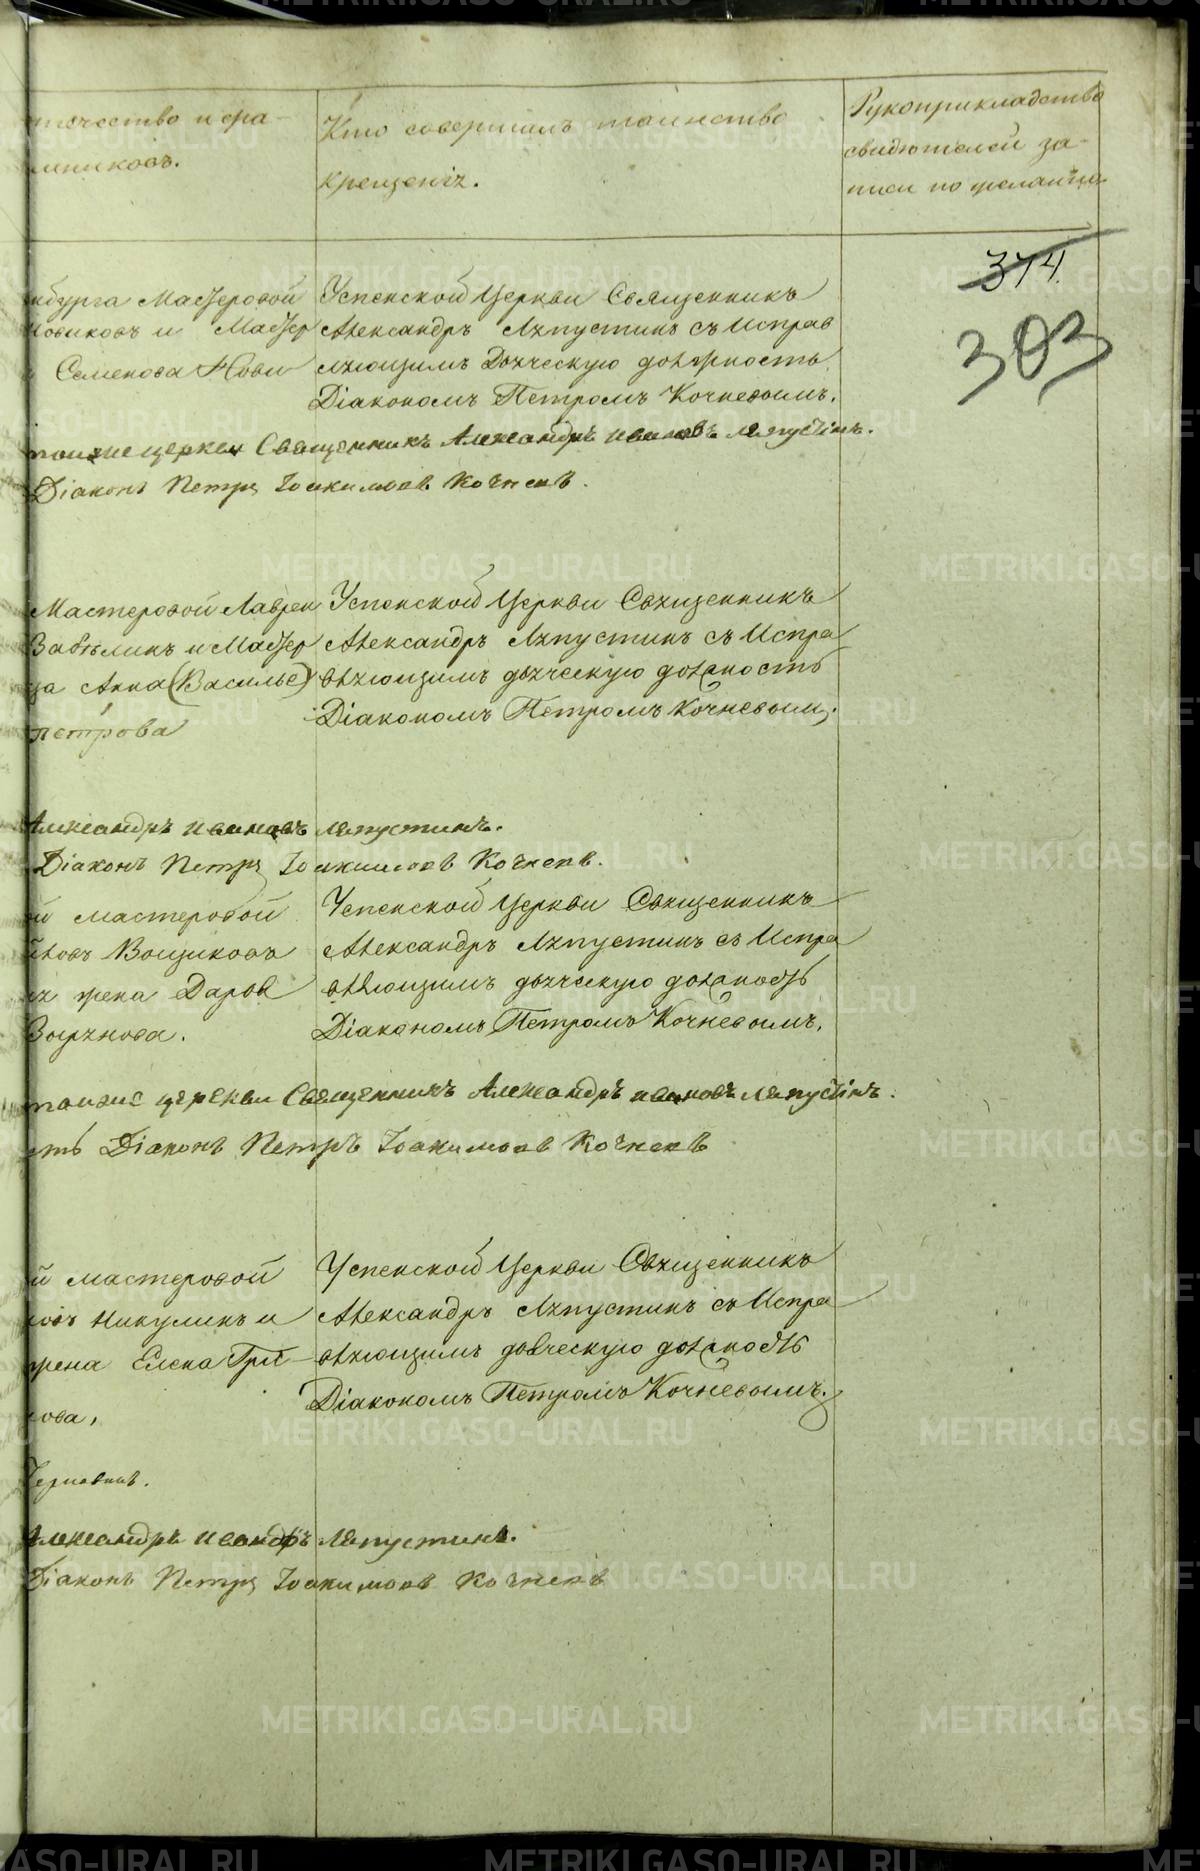 течество и фа-
миликовъ.
Кто совершалъ таинство
крещенія.
Рукоприкладство
свидѣтелей за-
писи по желанію
374
303
нбурга Мастеровой
Новиковъ и Мастер
Семенова Нови
Успенской Церкви Священникъ
Александръ Ляпустинъ съ Исправ
ляющимъ Дьяческую должность
Діакономъ Петромъ Кочневымъ.
тоиже церкви Священникъ Александръ Ивановъ Ляпустинъ.
Діаконъ Петръ Іоакимовъ Кочневъ.
Мастеровой Лаврен
Забѣлинъ и Мастер
ца Анна (Василье)
петрова
Успенской Церкви Священникъ
Александръ Ляпустинъ съ Испра
вляющимъ дьяческую должность
Діакономъ Петромъ Кочневым.
Александръ Ивановъ Ляпустинъ.
Діаконъ Петръ Іоакимовъ Кочневъ.
й мастеровой
Вощиковъ
жена Даров
Успенской Церкви Священникъ
Александръ Ляпустинъ съ Испра
вляющимъ дьяческую должность
Діакономъ Петромъ Кочневымъ.
тоиже церкви Священникъ Александръ Ивановъ Ляпустинъ.
сть Діаконъ Петръ Іоакимовъ Кочневъ
й мастеровой
ковъ Никулинъ и
жена Елена Гри
кова,
Успенской Церкви Священникъ
Александръ Ляпустинъ съ Испра
вляющимъ дьяческую должность
Діакономъ Петромъ Кочневымъ.
Александръ Ивановъ Ляпустинъ.
Діаконъ Петръ Іоакимовъ Кочневъ
METRIKI.GASO-URAL.RU